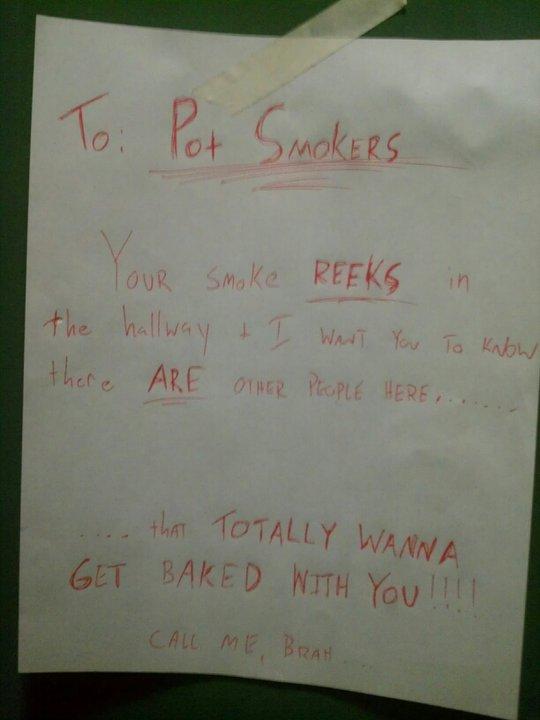 To: Pot SMOKERS
YOUR smoke REEKS in
the hallway + I WANT YOU TO KNOW
there ARE OTHER PEOPLE HERE,......
.... that TOTALLY WANNA
GET BAKED WITH YOU!!!!
CALL ME, BRAH...